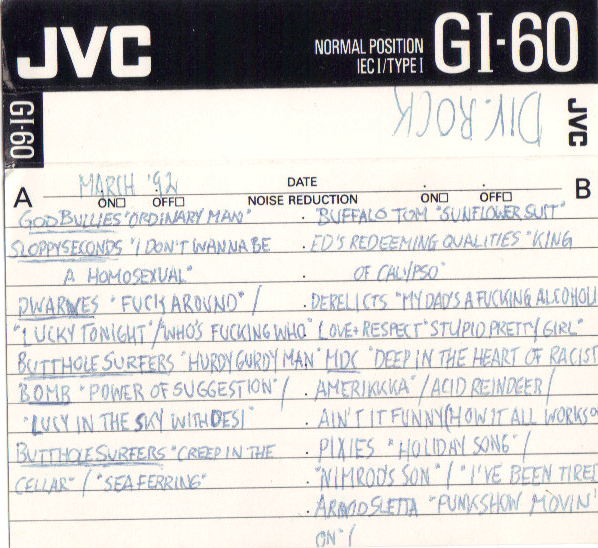 JVC
NORMAL POSITION
IEC I/TYPE I
GI-60
GI-60
DIV. ROCK
JVC
MARCH '92
DATE
A
ON□ OFF□ NOISE REDUCTION ON□ OFF□
B
GOD BULLIES "ORDINARY MAN"
SLOPPY SECONDS "I DON'T WANNA BE
A HOMOSEXUAL"
DWARVES "FUCK AROUND" /
"LUCKY TONIGHT"/"WHO'S FUCKING WHO"
BUTTHOLE SURFERS "HURDY GURDY MAN"
BOMB "POWER OF SUGGESTION" /
"LUCY IN THE SKY WITH DESI"
BUTTHOLE SURFERS "CREEP IN THE
CELLAR" / "SEA FERRING"
BUFFALO TOM "SUNFLOWER SUIT"
ED'S REDEEMING QUALITIES "KING
OF CALYPSO"
DERELICTS "MY DAD'S A FUCKING ALCOHOLI
LOVE + RESPECT "STUPID PRETTY GIRL"
MDC "DEEP IN THE HEART OF RACIST
AMERIKKKA" / ACID REINDEER /
AIN'T IT FUNNY (HOW IT ALL WORKS O
PIXIES "HOLIDAY SONG" /
"NIMROD'S SON" / "I'VE BEEN TIRED
ARVID SLETTA "PUNKSHOW MOVIN'
ON" /